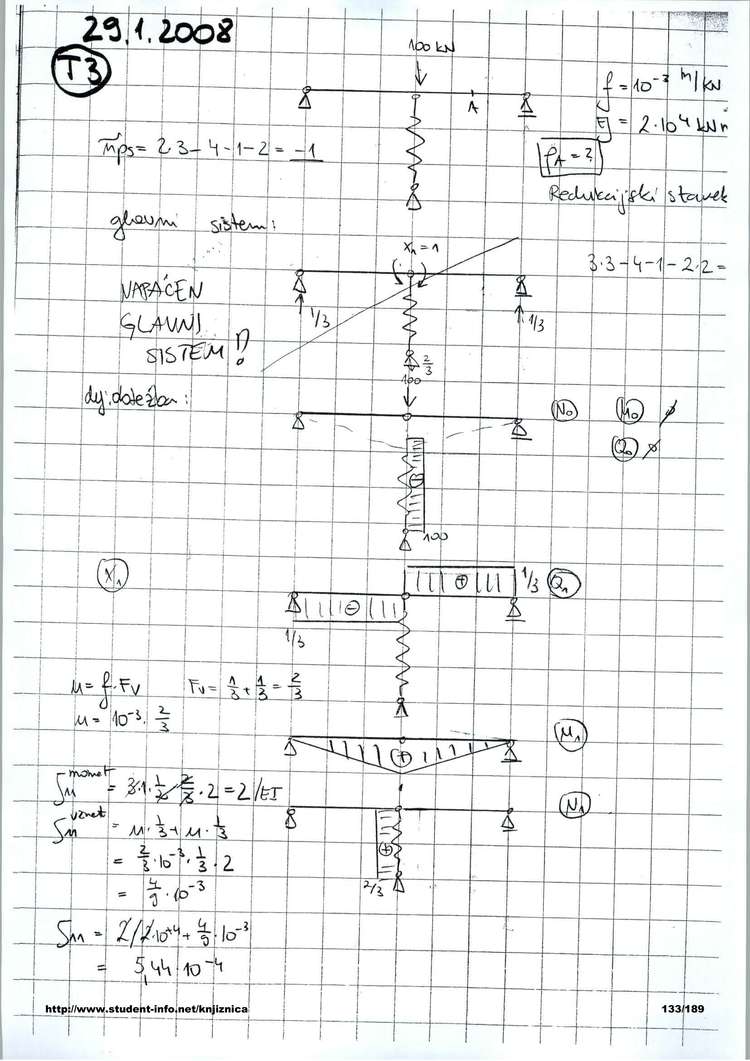 29.1.2008
T3
100 kN
A
f = 10⁻³ m/kN
EJ = 2·10⁴ kN
ñps = 2·3 – 4 – 1 – 2 = –1
φA = ?
Redukcijski stavek
glavni sistem:
x₁ = 1
3·3 – 4 – 1 – 2·2 =
NAPAČEN
GLAVNI
SISTEM!
1/3
1/3
2/3
100
dej. obtežba:
N₀ M₀ ∅
Q₀ ∅
100
X₁
+ 1/3 Q₁
–
1/3
u = f·Fv Fv = 1/3 + 1/3 = 2/3
u = 10⁻³ · 2/3
M₁
+
δ₁₁ momet = 3·1·1/2·2/3·2 = 2/EI
N₁
δ₁₁ vzmet = u·1/3 + u·1/3
= 2/3·10⁻³·1/3·2
+
= 4/9·10⁻³
2/3
δ₁₁ = 2/2·10⁺⁴ + 4/9·10⁻³
= 5,44·10⁻⁴
http://www.student-info.net/knjiznica
133/189